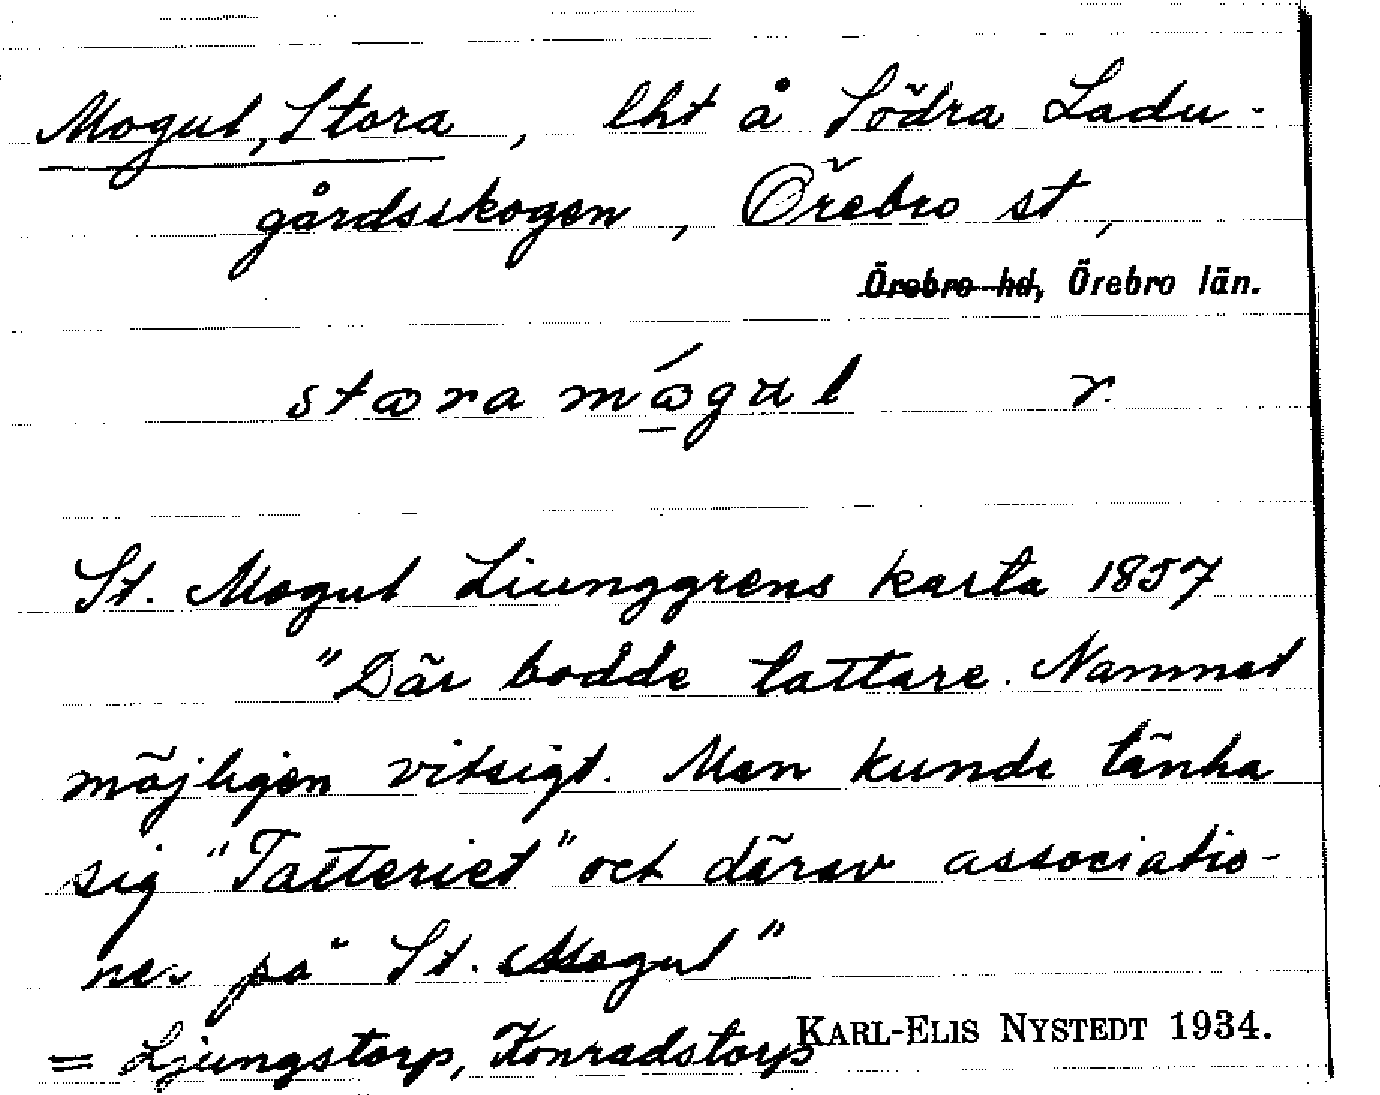 Mogul, Stora, lht å Södra Ladu-
gårdsskogen, Örebro st,
Örebro hd, Örebro län.
stɷra mɷ́gɯl r.
St. Mogul Liunggrens karta 1857
"Där bodde tattare. Namnet
möjligen vitsigt. Man kunde tänka
sig "Tatteriet" och därav associatio-
ner på St. Mogul"
KARL-ELIS NYSTEDT 1934.
= Ljungstorp, Konradstorp